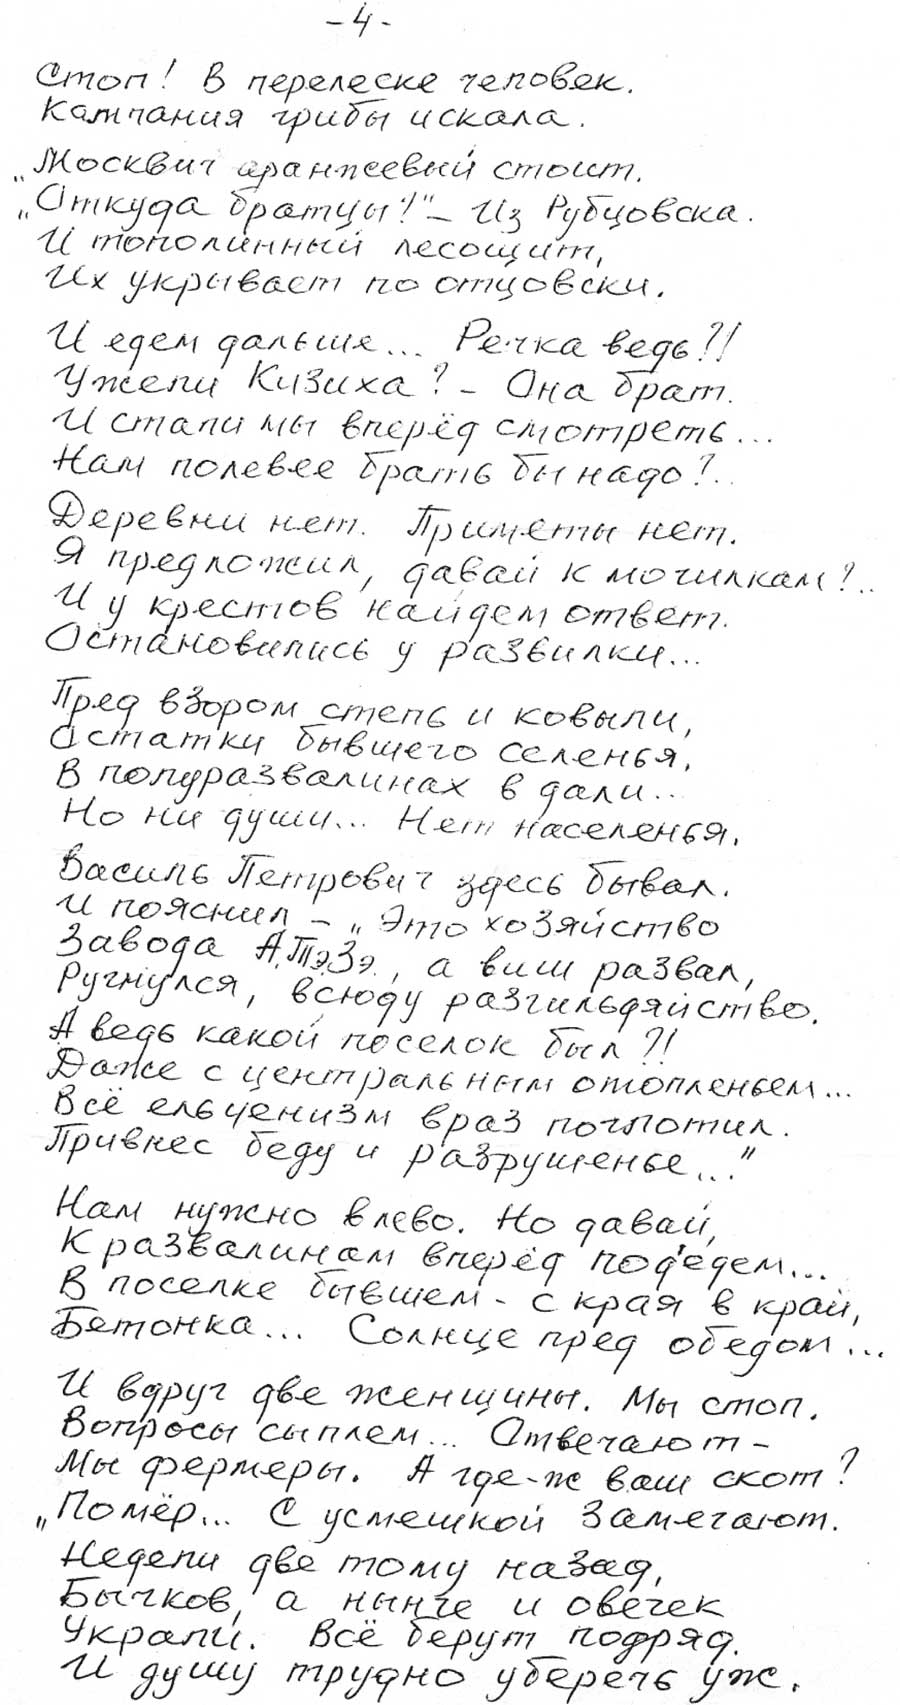 -4-
Стоп! В перелеске человек.
Кампания грибы искала.
„Москвич аранжеевый стоит.
„Откуда братцы?"- Из Рубцовска.
И тополинный лесощит,
Их укрывает по отцовски.
И едем дальше... Речка ведь?!
Ужели Кизиха? - Она брат.
И стали мы вперёд смотреть...
Нам полевее брать бы надо?..
Деревни нет. Приметы нет.
Я предложил, давай к могилкам?..
И у крестов найдем ответ.
Остановились у развилки...
Пред взором степь и ковыли,
Остатки бывшего селенья,
В полуразвалинах в дали...
Но ни души... Нет населенья.
Василь Петрович здесь бывал.
И пояснил - „Это хозяйство
Завода А.Тэ.Зэ., а виш развал,
Ругнулся, всюду разгильдяйство.
А ведь какой поселок был?!
Даже с центральным отопленьем...
Всё ельценизм враз поглотил.
Привнес беду и разрушенье..."
Нам нужно влево. Но давай,
К развалинам вперёд под'едем...
В поселке бывшем - с края в край,
Бетонка... Солнце пред обедом...
И вдруг две женщины. Мы стоп.
Вопросы сыплем... Отвечают -
Мы фермеры. А где-ж ваш скот?
„Помёр... С усмешкой замечают.
Недели две тому назад,
Бычков, а нынче и овечек
Украли. Всё берут подряд.
И душу трудно уберечь уж.